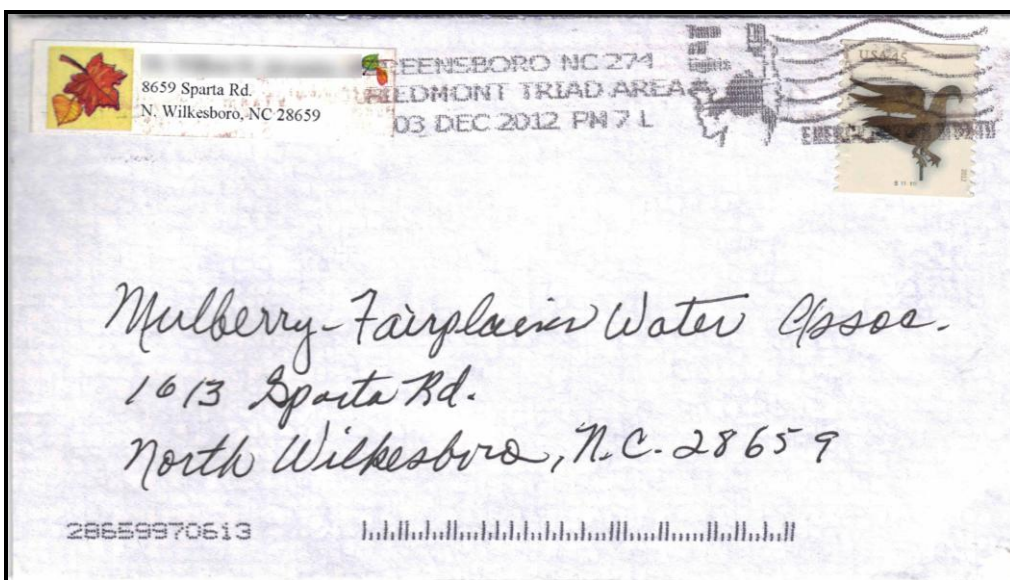 8659 Sparta Rd.
N. Wilkesboro, NC 28659
GREENSBORO NC 274
PIEDMONT TRIAD AREA
03 DEC 2012 PM 7 L
Lights
USA 45
2012
Mulberry-Fairplains Water Assoc.
1613 Sparta Rd.
North Wilkesboro, N.C. 28659
28659970613